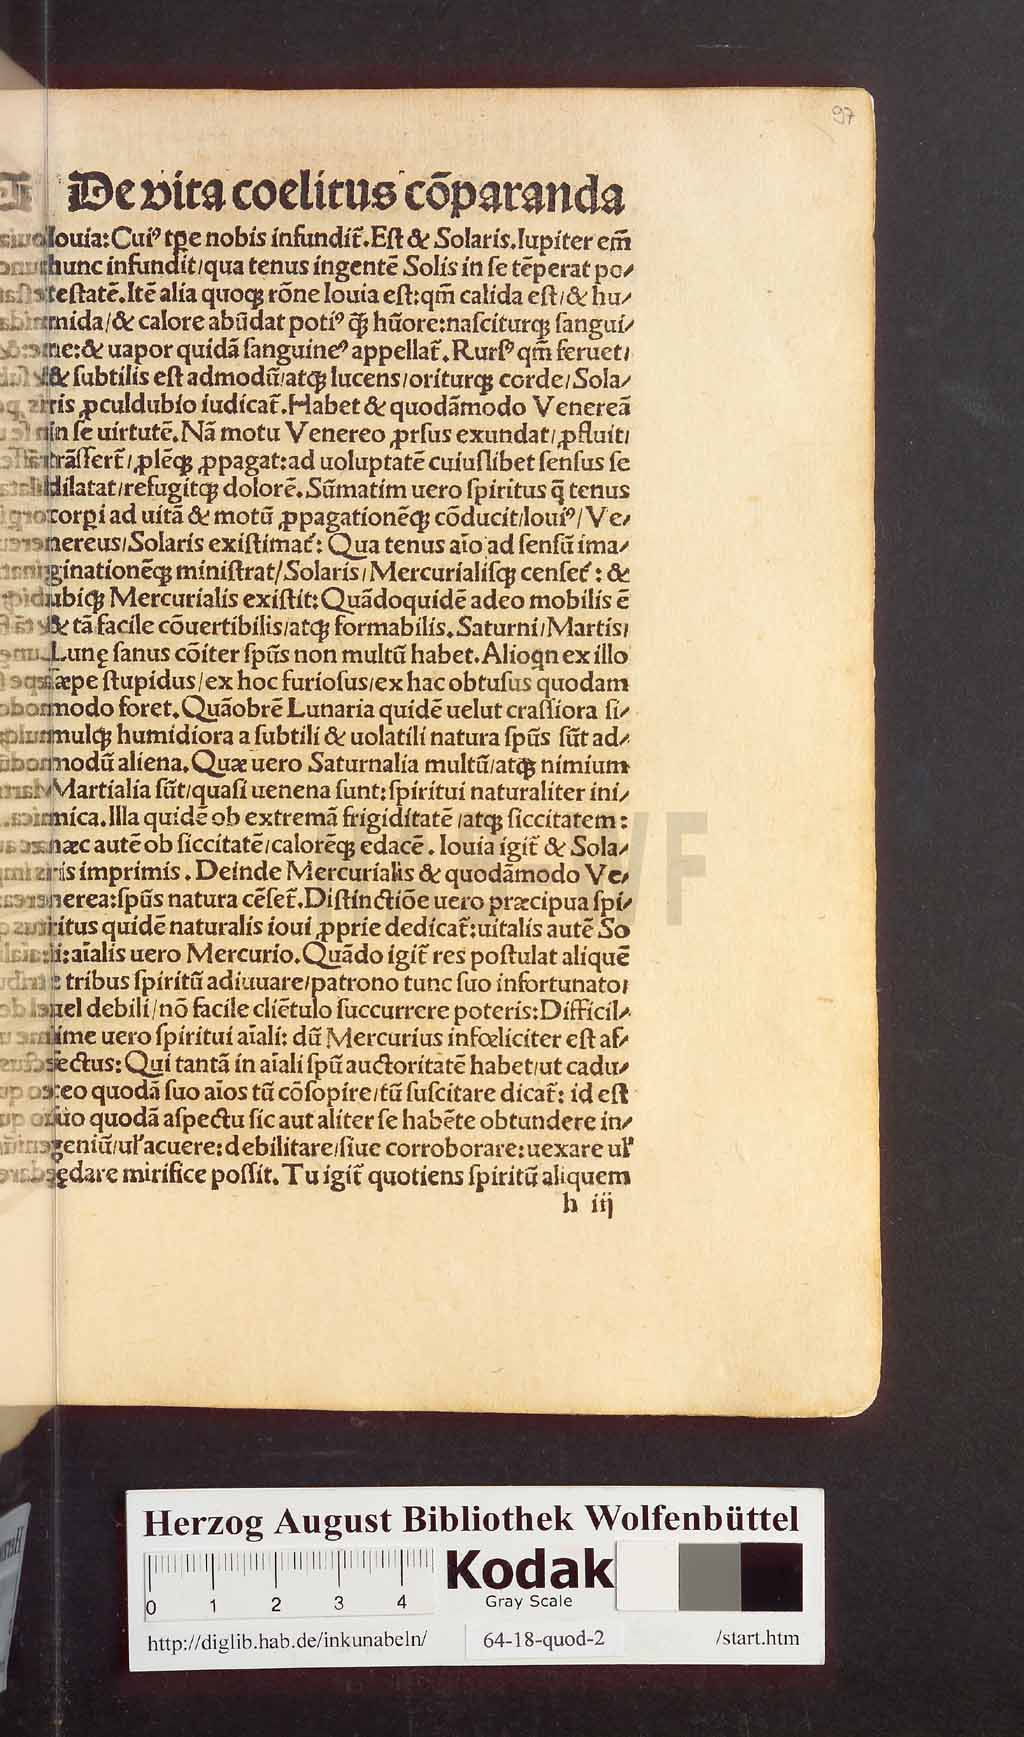 97
De vita coelitus cōparanda
Iouia: Cuiꝰ tꝑe nobis infundit̄. Est & Solaris. Iupiter em̄
hunc infundit/ qua tenus ingentē Solis in se tēperat po/
testatē. Itē alia quoqꝫ rōne Iouia est: qm̄ calida est/ & hu/
mida/ & calore abūdat potiꝰ qꝫ̄ hūore: nasciturqꝫ sangui/
ne: & uapor quidā sanguineꝰ appellat̄. Rursꝰ qm̄ feruet/
& subtilis est admodū/ atqꝫ lucens/ oriturqꝫ corde/ Sola/
ris ꝓculdubio iudicat̄. Habet & quodāmodo Venereā
in se uirtutē. Nā motu Venereo ꝓrsus exundat/ ꝓfluit/
trāsfert̄/ ꝓlēqꝫ ꝓpagat: ad uoluptatē cuiuslibet sensus se
dilatat/ refugitqꝫ dolorē. Sūmatim uero spiritus q̄ tenus
corpi ad uitā & motū ꝓpagationēqꝫ cōducit/ Iouiꝰ/ Ve/
nereus/ Solaris existimat̄: Qua tenus aīo ad sensū ima/
ginationēqꝫ ministrat/ Solaris/ Mercurialisqꝫ censet̄: &
ubiqꝫ Mercurialis existit: Quādoquidē adeo mobilis ē
& tā facile cōuertibilis/ atqꝫ formabilis. Saturni/ Martis/
Lunę sanus cōiter spūs non multū habet. Alioqn ex illo
sæpe stupidus/ ex hoc furiosus/ ex hac obtusus quodam
modo foret. Quāobrē Lunaria quidē uelut crassiora si/
mulqꝫ humidiora a subtili & uolatili natura spūs sūt ad/
modū aliena. Quæ uero Saturnalia multū/ atqꝫ nimium
Martialia sūt/ quasi uenena sunt: spiritui naturaliter ini/
mica. Illa quidē ob extremā frigiditatē/ atqꝫ siccitatem:
hæc autē ob siccitatē/ calorēqꝫ edacē. Iouia igit̄ & Sola/
ris imprimis. Deinde Mercurialis & quodāmodo Ve/
nerea: spūs natura cēset̄. Distinctiōe uero præcipua spi/
ritus quidē naturalis ioui ꝓprie dedicat̄: uitalis autē So
li: aīalis uero Mercurio. Quādo igit̄ res postulat aliquē
e tribus spiritū adiuuare/ patrono tunc suo infortunato/
uel debili/ nō facile cliētulo succurrere poteris: Difficil/
lime uero spiritui aīali: dū Mercurius infœliciter est af/
fectus: Qui tantā in aīali spū auctoritatē habet/ ut cadu/
ceo quodā suo aīos tū cōsopire/ tū suscitare dicat̄: id est
suo quodā aspectu sic aut aliter se habēte obtundere in/
geniū/ ul' acuere: debilitare/ siue corroborare: uexare ul'
sędare mirifice possit. Tu igit̄ quotiens spiritū aliquem
h iij
Herzog August Bibliothek Wolfenbüttel
0 1 2 3 4
Kodak
Gray Scale
http://diglib.hab.de/inkunabeln/ 64-18-quod-2 /start.htm